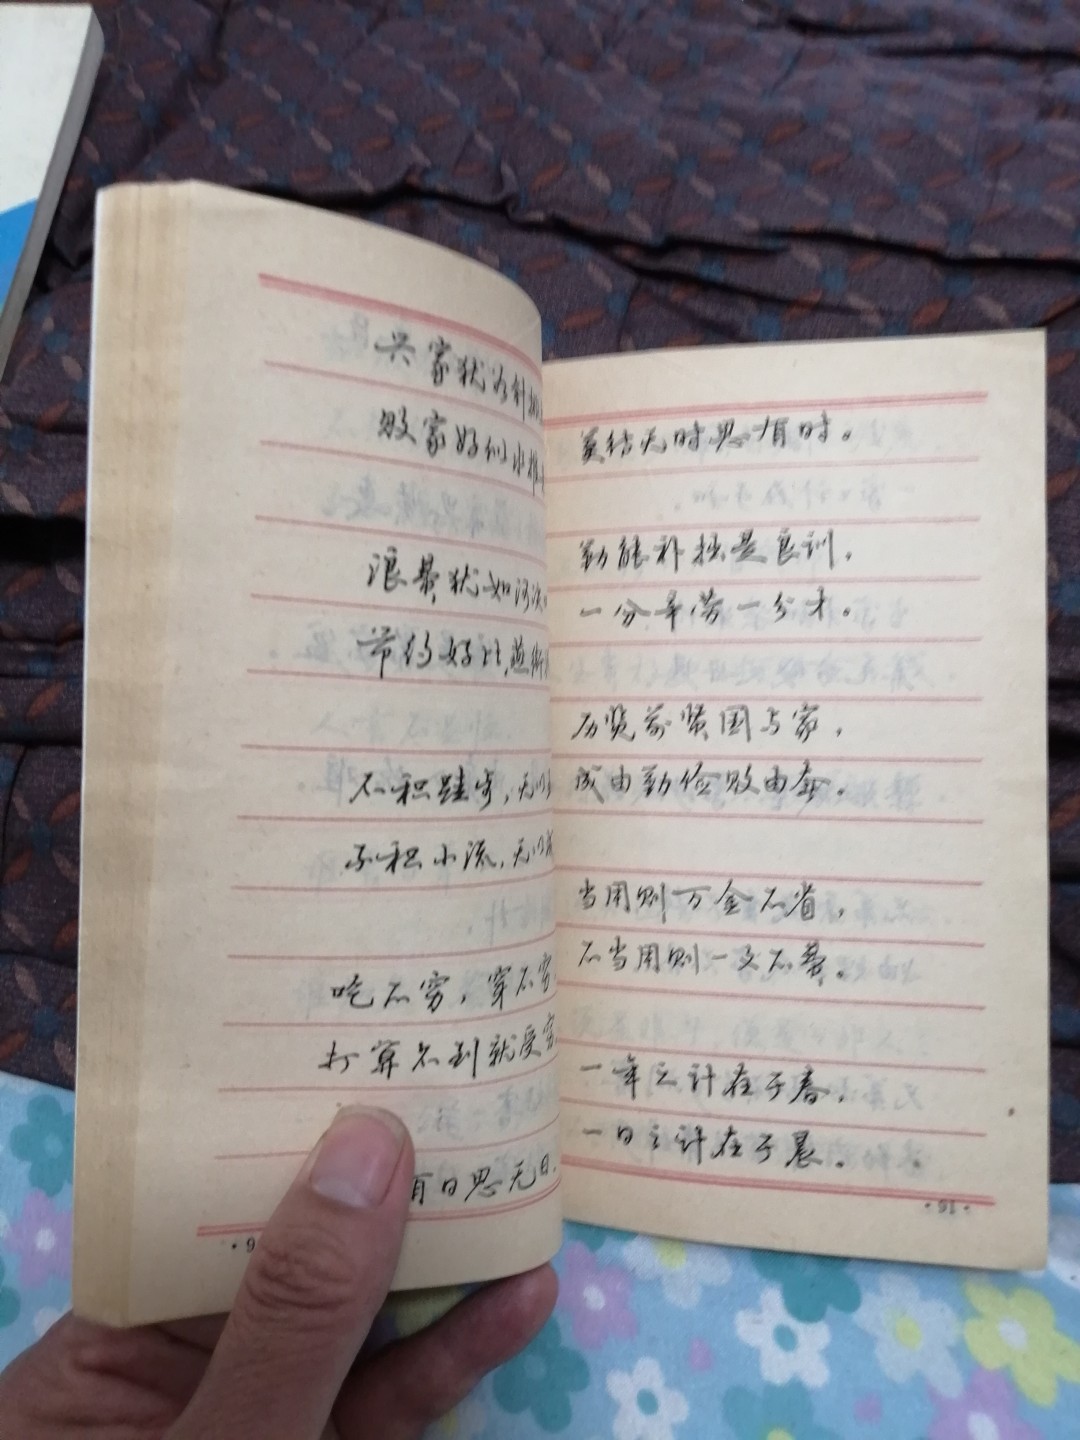 兴家犹如针挑
败家好似水推
浪暴犹如河决
节约好比燕衔
不积跬步，无以
不积小流，无以成
吃不穷，穿不穷
打算不到就受穷
有日思无日，
莫待无时思有时。
勤能补拙是良训，
一分辛劳一分才。
历览前贤国与家，
成由勤俭败由奢。
当用则万金不省，
不当用则一文不费。
一年之计在于春，
一日之计在于晨。